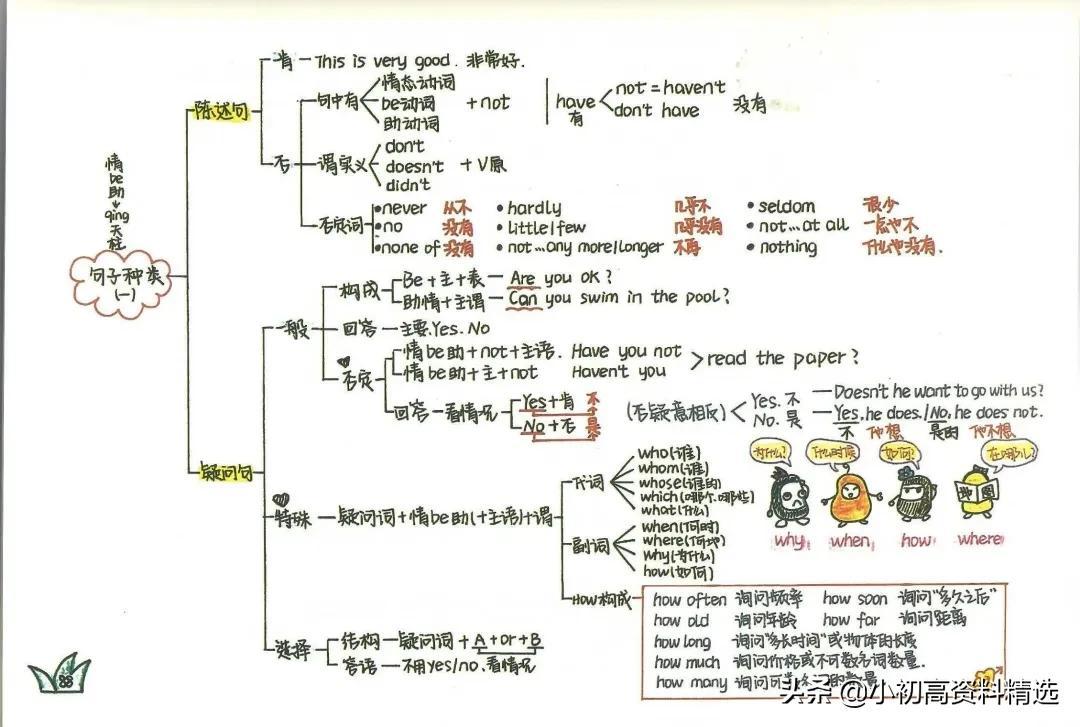 肯 — This is very good. 非常好.
陈述句
句中有
情态动词
be动词
助动词
+not
have
有
not = haven't
don't have
没有
否
谓实义
don't
doesn't
didn't
+ V原
否定词
•never 从不
•hardly 几乎不
•seldom 很少
•no 没有
•little/few 几乎没有
•not...at all 一点也不
•none of 没有
•not...any more/longer 不再
•nothing 什么也没有.
情be助→qing天柱
句子种类
(一)
疑问句
一般
构成
Be+主+表 — Are you OK?
助情+主谓 — Can you swim in the pool?
回答 — 主要.Yes. No
否定
情be助+not+主语. Have you not
情be助+主+not Haven't you
read the paper?
回答—看情况
Yes+肯 不
No+否 是
(否疑意相反)
Yes. 不
No. 是
— Doesn't he want to go with us?
— Yes, he does. / No, he does not.
不 他想 是的 他不想
特殊 — 疑问词+情be助(+主语)+谓
代词
who(谁)
whom(谁)
whose(谁的)
which(哪个.哪些)
what(什么)
副词
when(何时)
where(何地)
why(为什么)
how(如何)
为什么?
什么时候
如何?
在哪儿?
地图
why when how where
How构成
how often 询问频率 how soon 询问"多久之后"
how old 询问年龄 how far 询问距离
how long 询问"多长时间"或物体的长度
how much 询问价格或不可数名词数量.
how many 询问可数名词的数量
选择
结构—疑问词+A+or+B
答语—不用yes/no.看情况
88
头条 @小初高资料精选